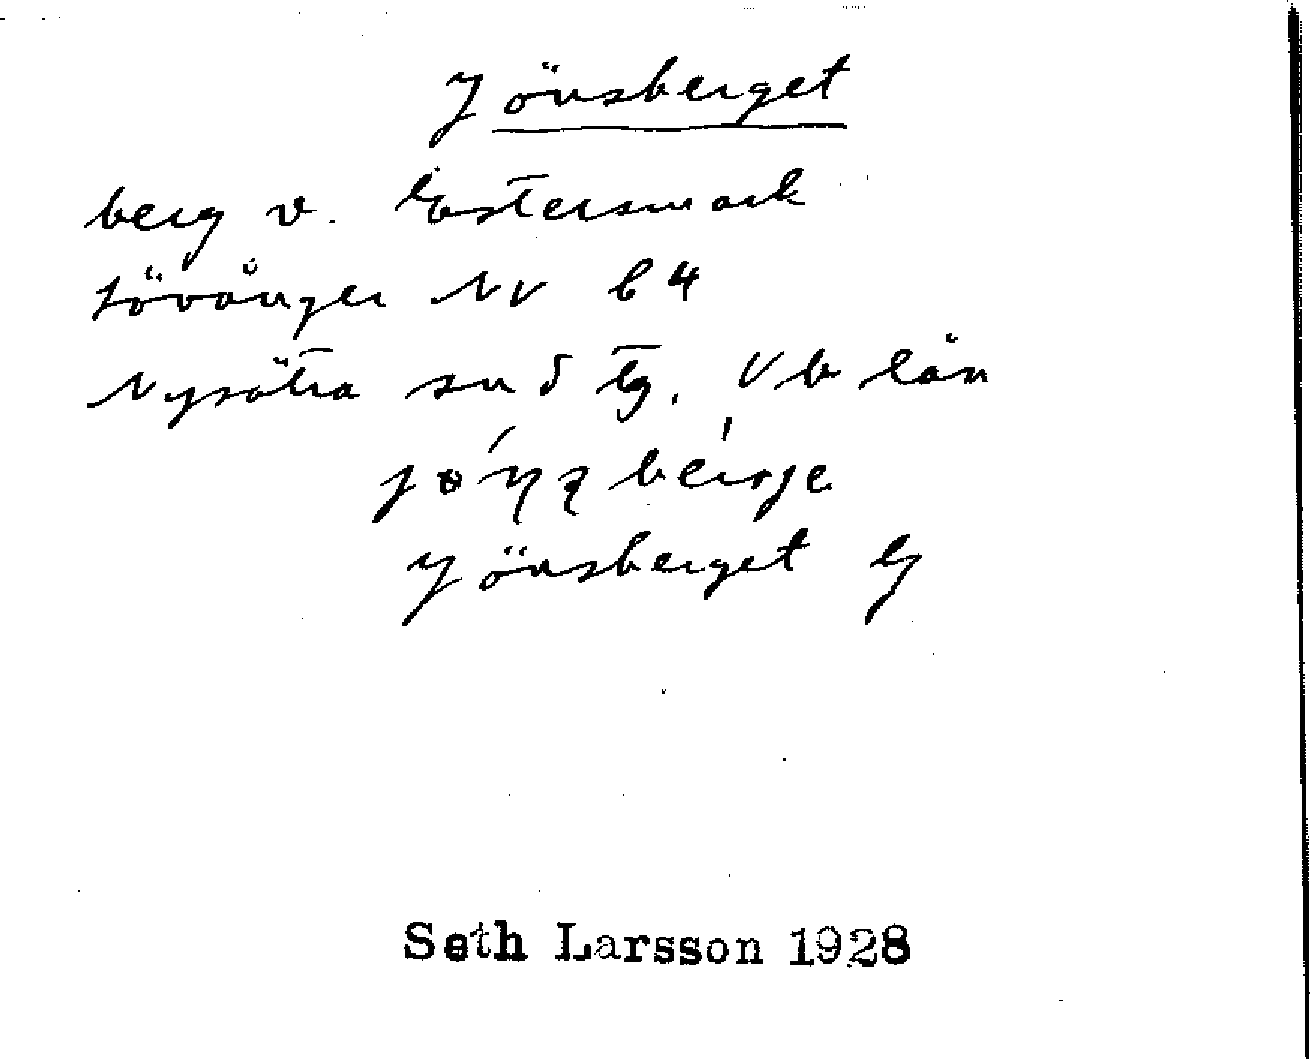 Jönsberget
berg v. Estersmark
Lövånger NV b 4
Nysätra sn S tg. Vb län
Jönsberget
Seth Larsson 1928